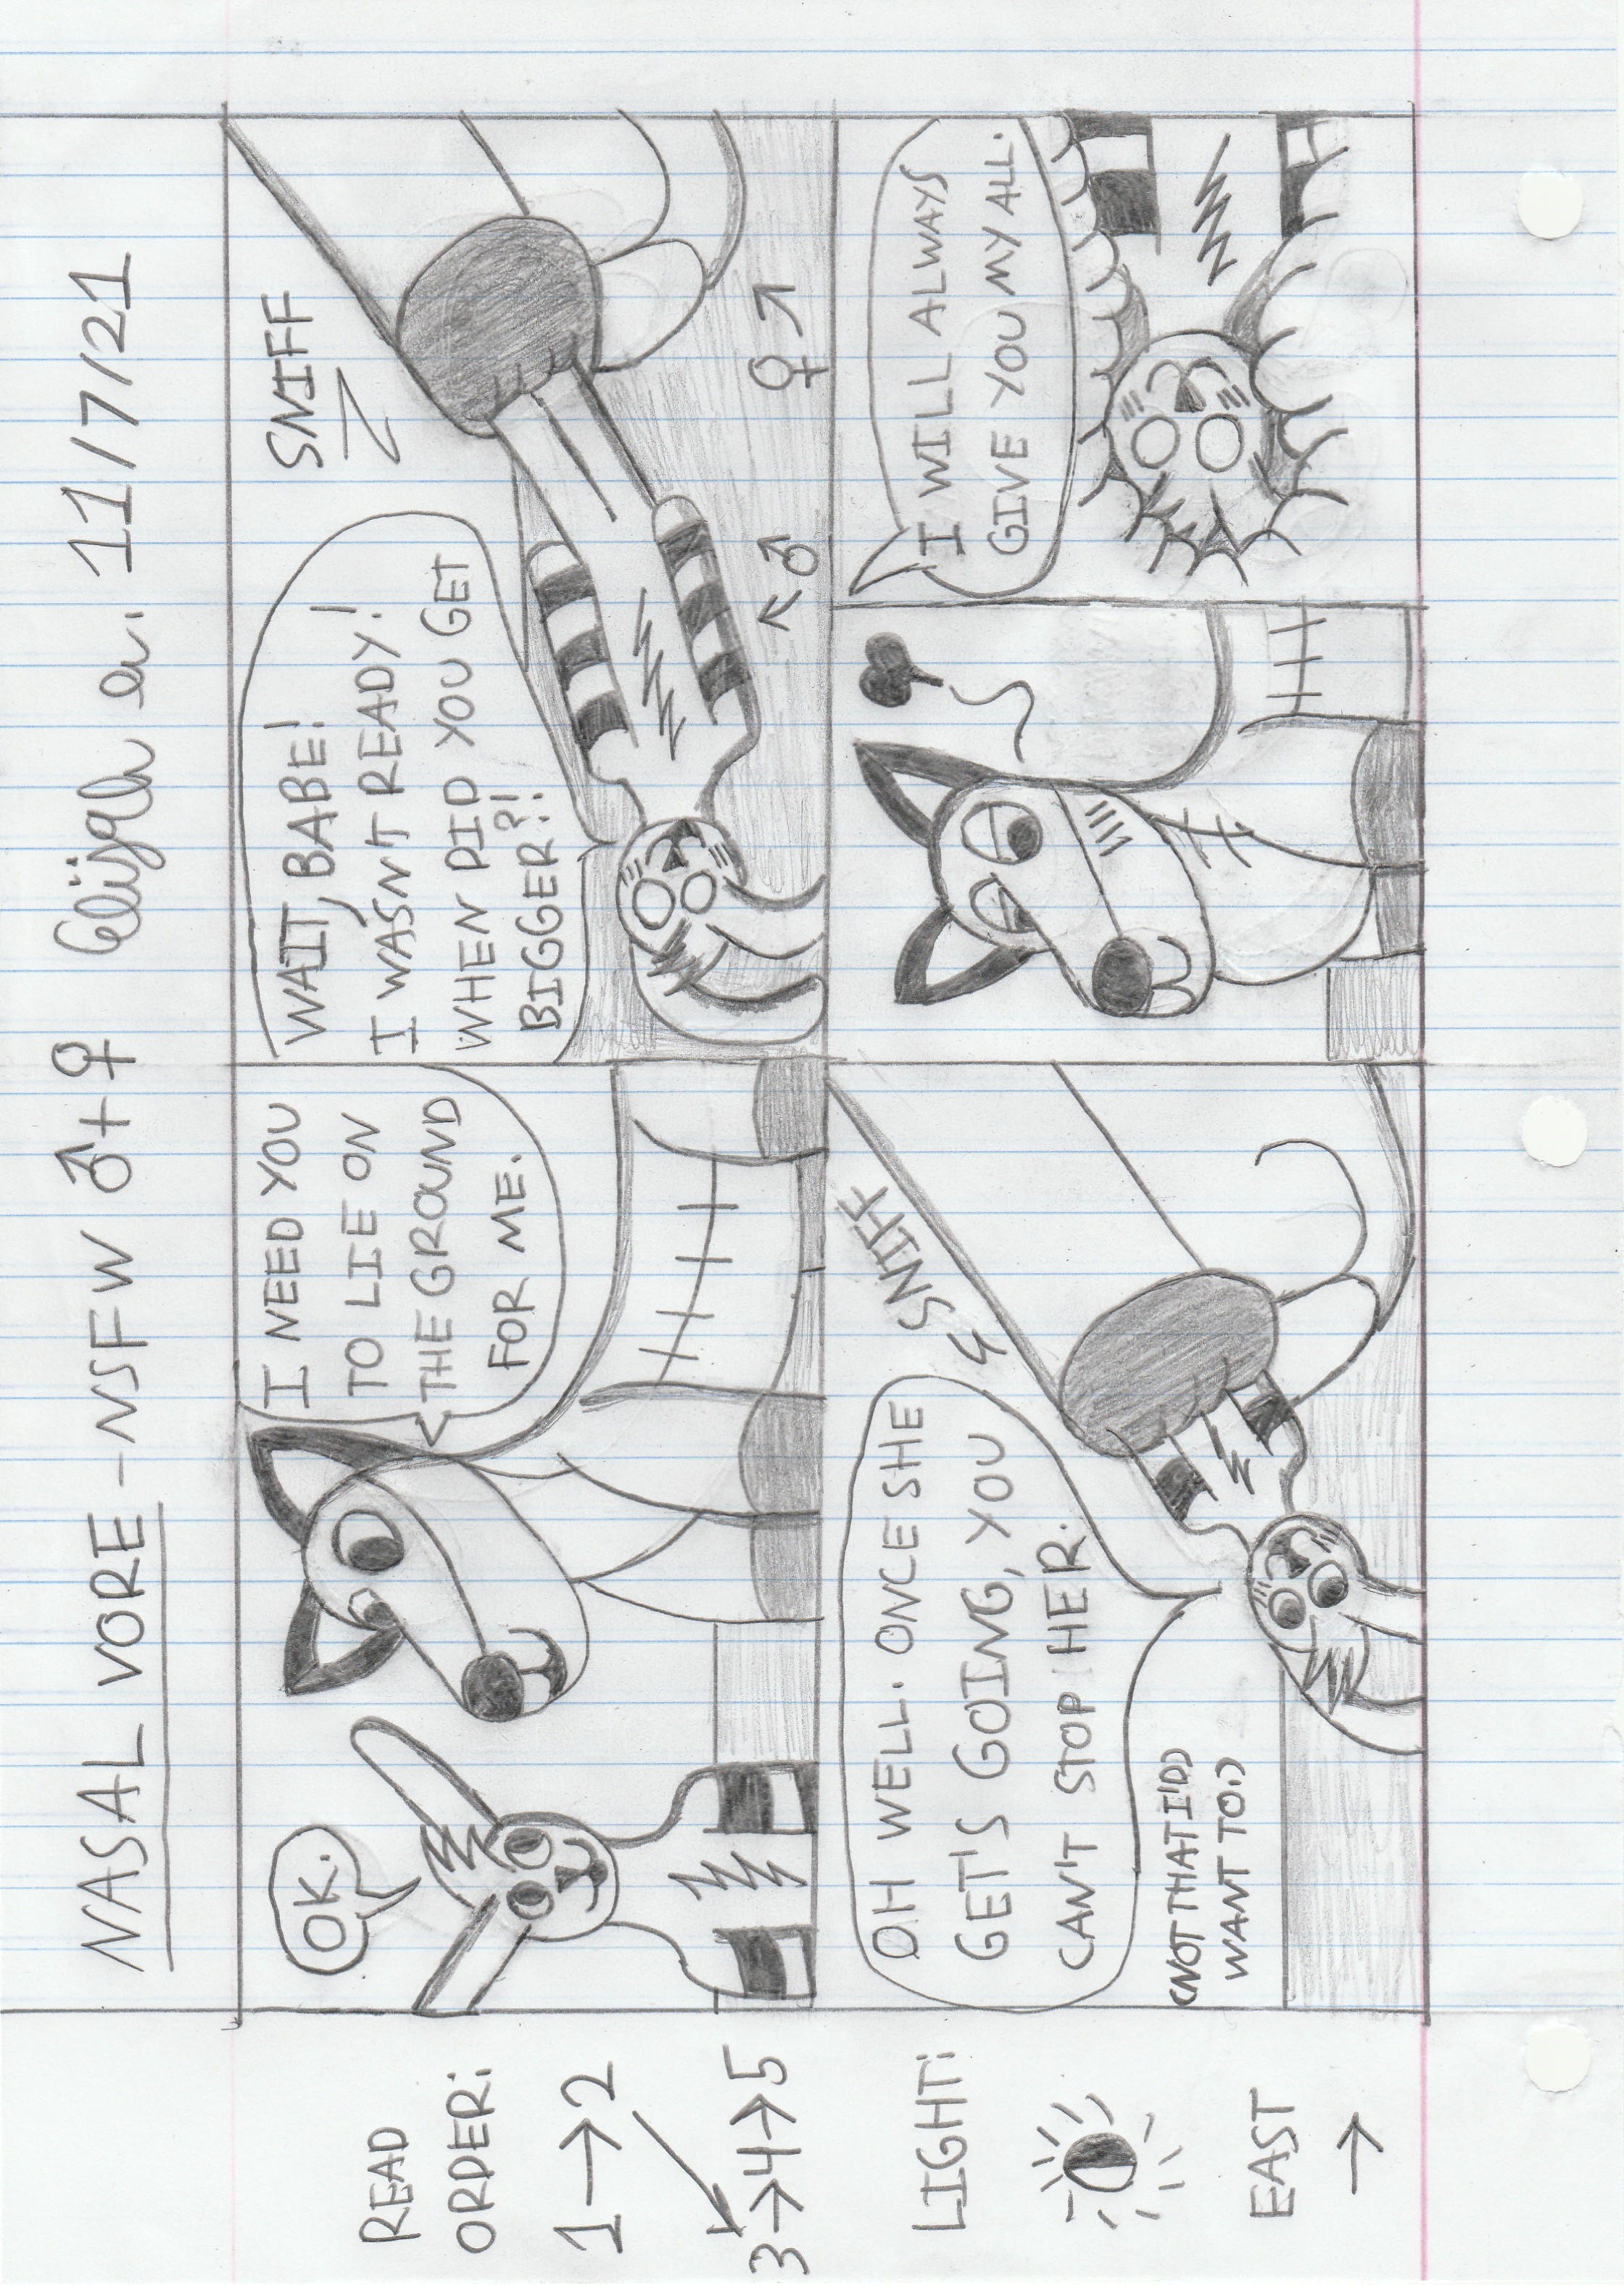 NASAL VORE - NSFW ♂+♀ Elijah a. 11/7/21
READ
ORDER:
1→2
3→4→5
LIGHT:
EAST
→
OK.
I NEED YOU
TO LIE ON
THE GROUND
FOR ME.
WAIT, BABE!
I WASN'T READY!
WHEN DID YOU GET
BIGGER?!
SNIFF
♂
♀
OH WELL. ONCE SHE
GET'S GOING, YOU
CAN'T STOP HER.
(NOT THAT I'D
WANT TO.)
SNIFF
I WILL ALWAYS
GIVE YOU MY ALL.